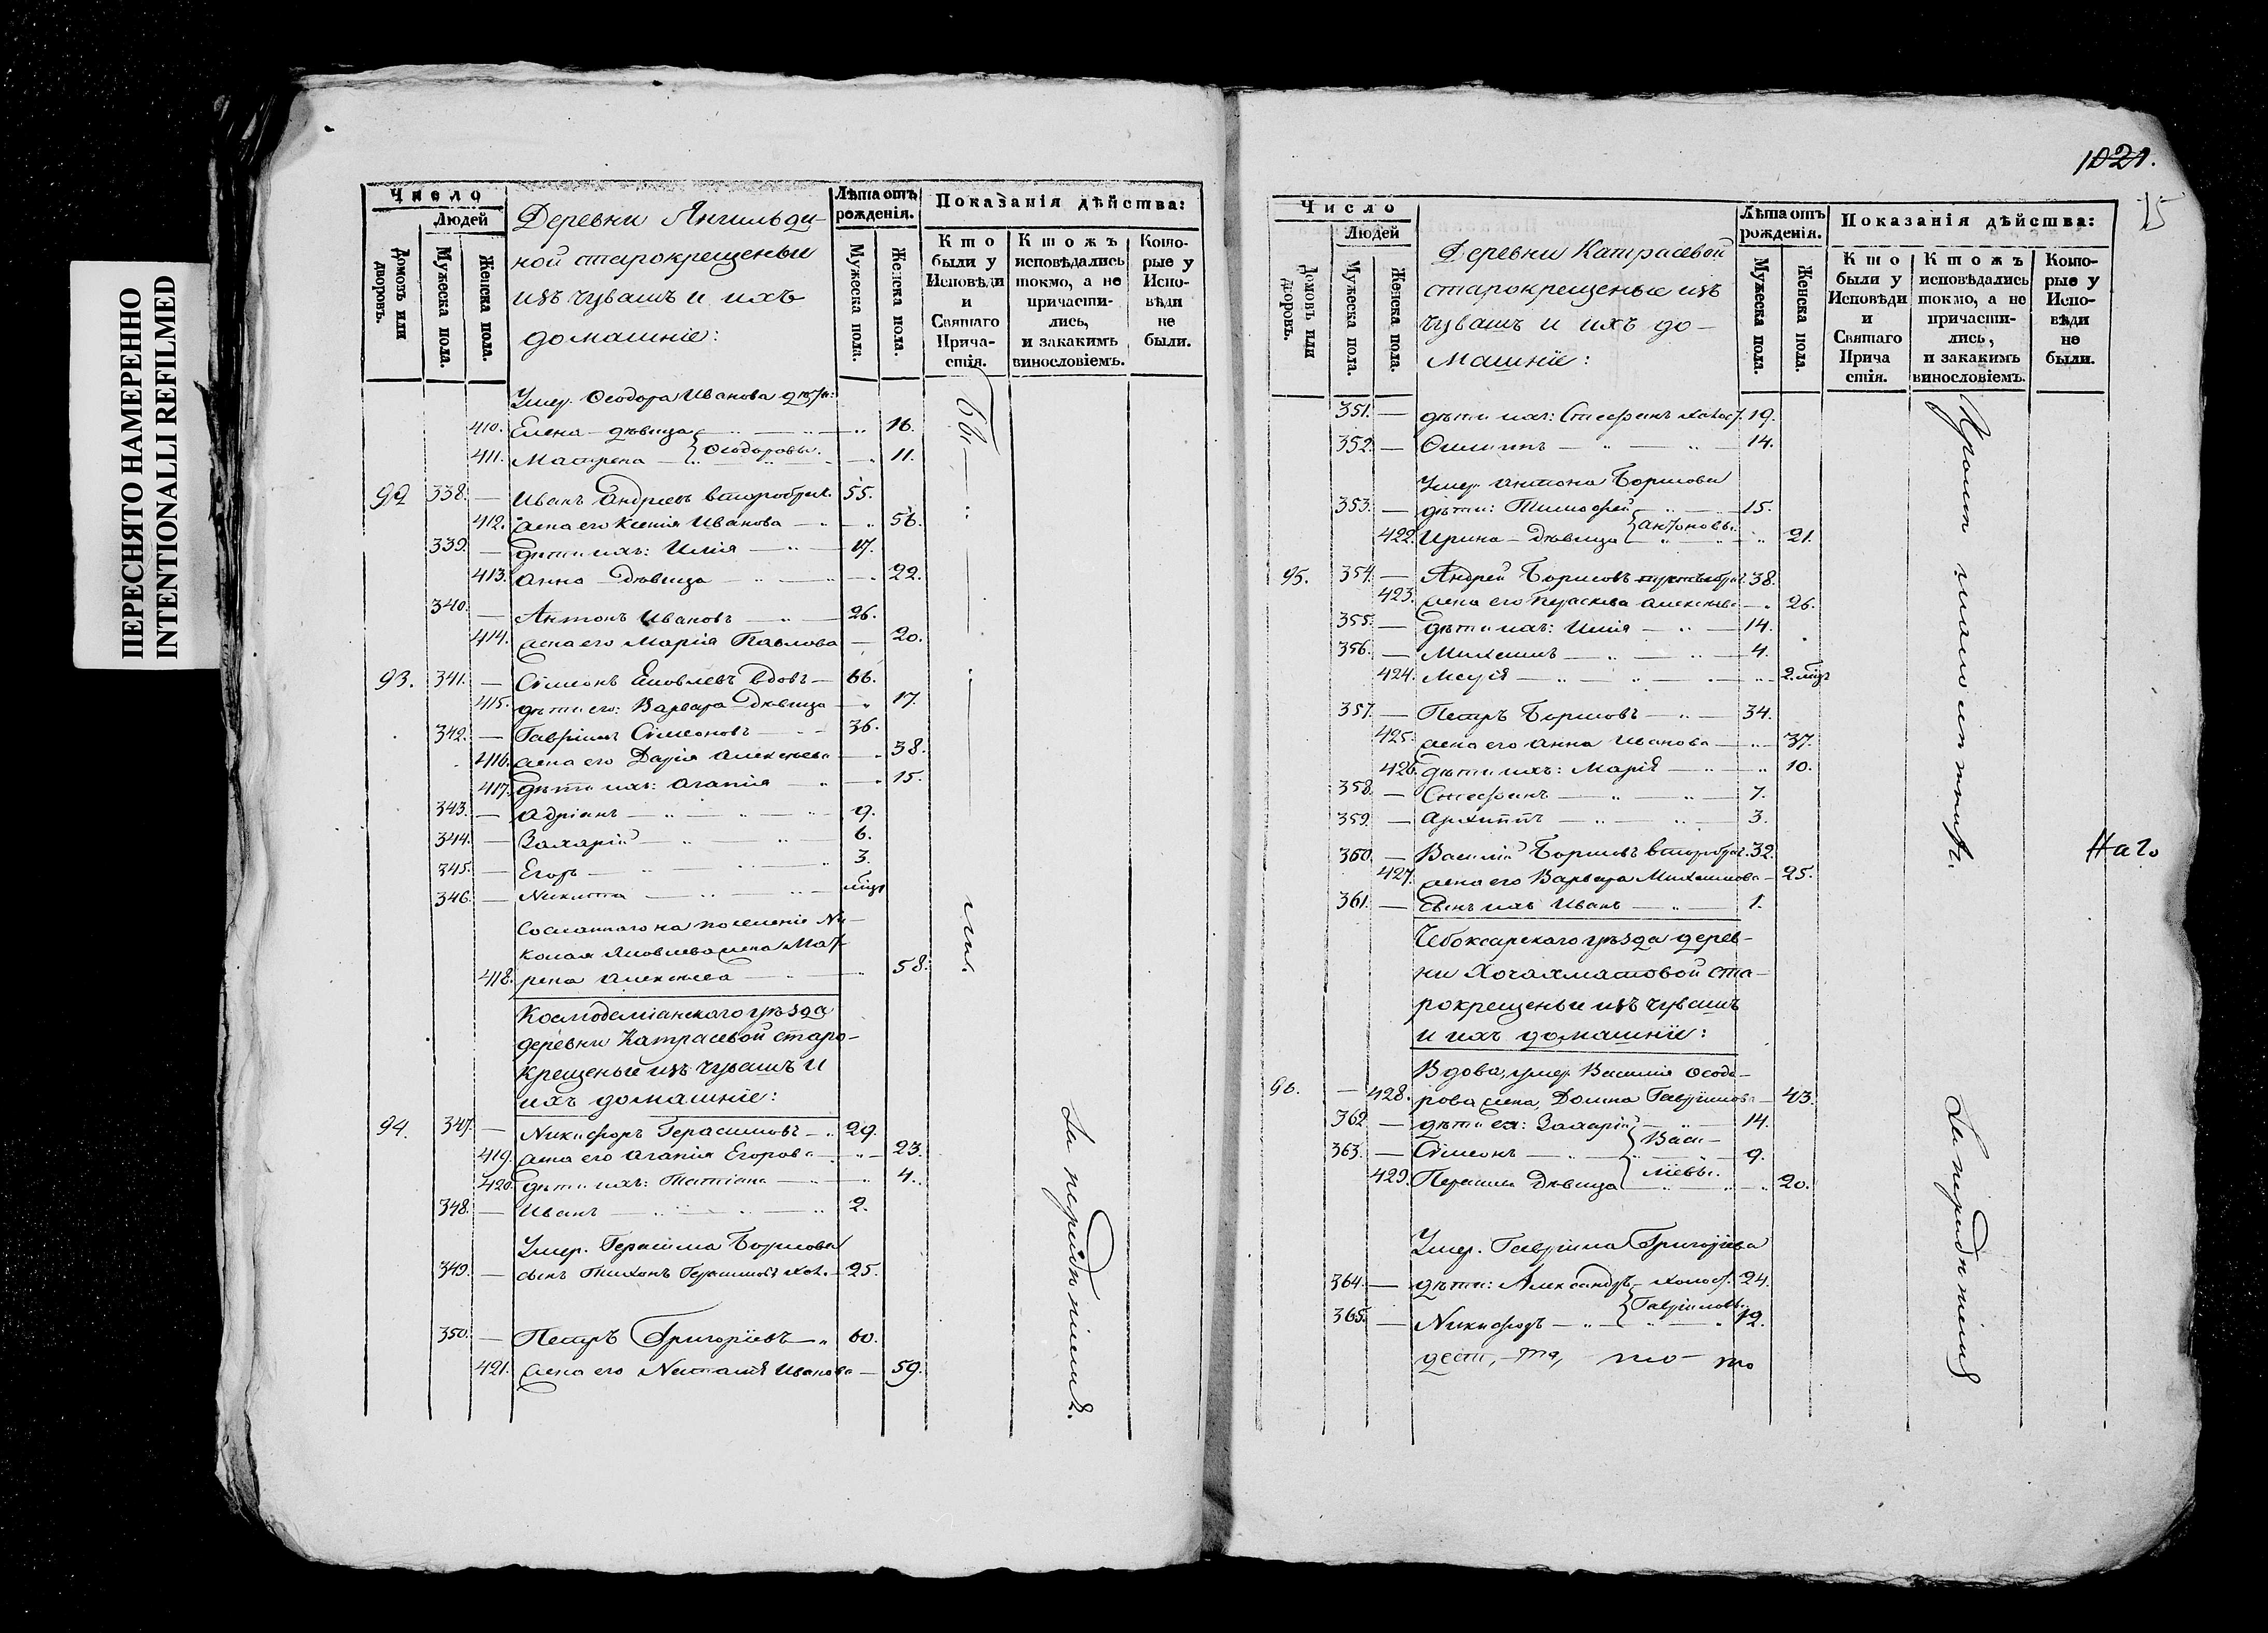 ПЕРЕСНЯТО НАМЕРЕННО
INTENTIONALLI REFILMED
Число
Людей
Домовъ или дворовъ.
Мужеска пола.
Женска пола.
Деревни Янгильди-
ной старокрещеныи
изъ чувашъ и ихъ
домашніе:
Лѣта отъ рожденія.
Мужеска пола.
Женска пола.
Показанія дѣйства:
Кто были у Исповѣди и Святаго Прича-стія.
Ктожъ исповѣдались токмо, а не причасти-лись, и закакимъ винословіемъ.
Кото-рые у Испо-вѣди не были.
Умер. Ѳеодора Иванова дѣти:
410. Елена дѣвица 16.
411. Матрена Ѳеодоровы. 11.
92 338. Иванъ Андреевъ второбрач. 55.
412. жена его Ксенія Иванова 56.
339. дѣти ихъ: Илія 17.
413. Анна дѣвица 22.
340. Антонъ Ивановъ 26.
414. жена его Марія Павлова 20.
93. 341. Сѵмеонъ Яковлевъ вдовъ 66.
415. дѣти его: Варвара дѣвица 17.
342. Гавріилъ Сѵмеоновъ 36.
416. жена его Дарія Алексеева 38.
417. дѣти ихъ: Агапія 15.
343. Адріанъ 9.
344. Захарій 6.
345. Егоръ 3.
346. Никита
Сосланнаго на поселеніе Ни-
колая Яковлева жена Мат-
418. рена Алексеева 58.
Космодеміанскаго уѣзда
деревни Катрасевой старо-
крещеные изъ чувашъ и
ихъ домашніе:
94. 347. Никифоръ Герасимовъ 29.
419. жена его Агапія Егорова 23.
420. дѣти ихъ: Татіана 4.
348. Иванъ 2.
Умер. Герасима Борисова
349. сынъ Тихонъ Герасимовъ хол. 25.
350. Петръ Григоріевъ 60.
421. жена его Наталія Иванова 59.
Бы
ли.
За нерадѣніемъ.
1021.
15
Число
Людей
Домовъ или дворовъ.
Мужеска пола.
Женска пола.
Деревни Катрасевой
старокрещеные изъ
чувашъ и ихъ до-
машніе:
Лѣта отъ рожденія.
Мужеска пола.
Женска пола.
Показанія дѣйства:
Кто были у Исповѣди и Святаго Прича стія.
Ктожъ исповѣдались токмо, а не причасти-лись, и закакимъ винословіемъ.
Кото-рые у Испо-вѣди не были.
351. дѣти ихъ: Стефанъ холост. 19.
352. Филиппъ 14.
Умер. Антона Борисова
353. дѣти: Тимофей 15.
422. Ирина дѣвица Антоновы. 21.
95. 354. Андрей Борисовъ 38.
423. жена его Параскева Алексеева 26.
355. дѣти ихъ: Илія 14.
356. Михаилъ 4.
424. Марія 2.
357. Петръ Борисовъ 34.
425. жена его Анна Иванова 37.
426. дѣти ихъ: Марія 10.
358. Стефанъ 7.
359. Архиппъ 3.
360. Василій Борисовъ второбрач. 32.
427. жена его Варвара Михаилова 25.
361. Сынъ ихъ Иванъ 1.
Чебоксарскаго уѣзда дерев-
ни Хочахматовой ста-
рокрещеные изъ чувашъ
и ихъ домашніе:
Вдова, умер. Василія Ѳеодо-
96. 428. рова жена, Домна Гавріилова 43.
362. дѣти ея: Захарій 14.
363. Сѵмеонъ Васи- 9.
429. дѣвица льевы. 20.
Умер. Гавріила Григоріева
364. дѣти: Александръ холост. 24.
365. Никифоръ Гавріиловы. 12.
За нерадѣніемъ